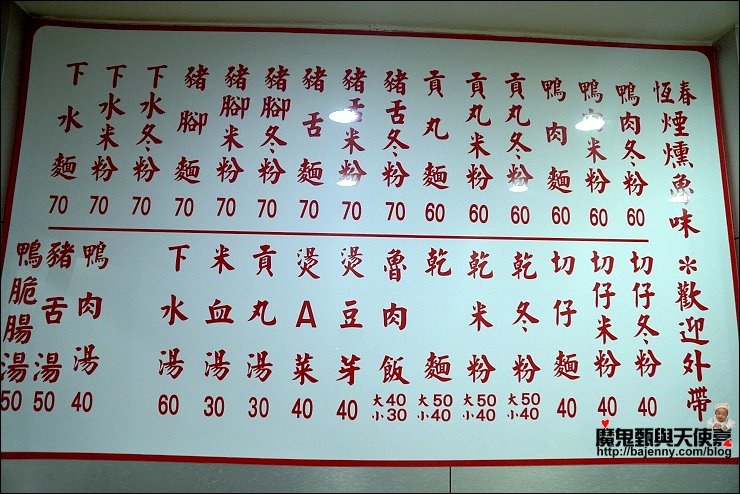 恆春
煙燻魯味＊歡迎外帶
鴨肉冬粉 60
鴨肉米粉 60
鴨肉麵 60
貢丸冬粉 60
貢丸米粉 60
貢丸麵 60
豬舌冬粉 70
豬舌米粉 70
豬舌麵 70
豬腳冬粉 70
豬腳米粉 70
豬腳麵 70
下水冬粉 70
下水米粉 70
下水麵 70
切仔冬粉 40
切仔米粉 40
切仔麵 40
乾冬粉 大50 小40
乾米粉 大50 小40
乾麵 大50 小40
魯肉飯 大40 小30
燙豆芽 40
燙A菜 40
貢丸湯 30
米血湯 30
下水湯 60
鴨肉湯 40
豬舌湯 50
鴨脆腸湯 50
魔鬼甄與天使嘉
http://bajenny.com/blog